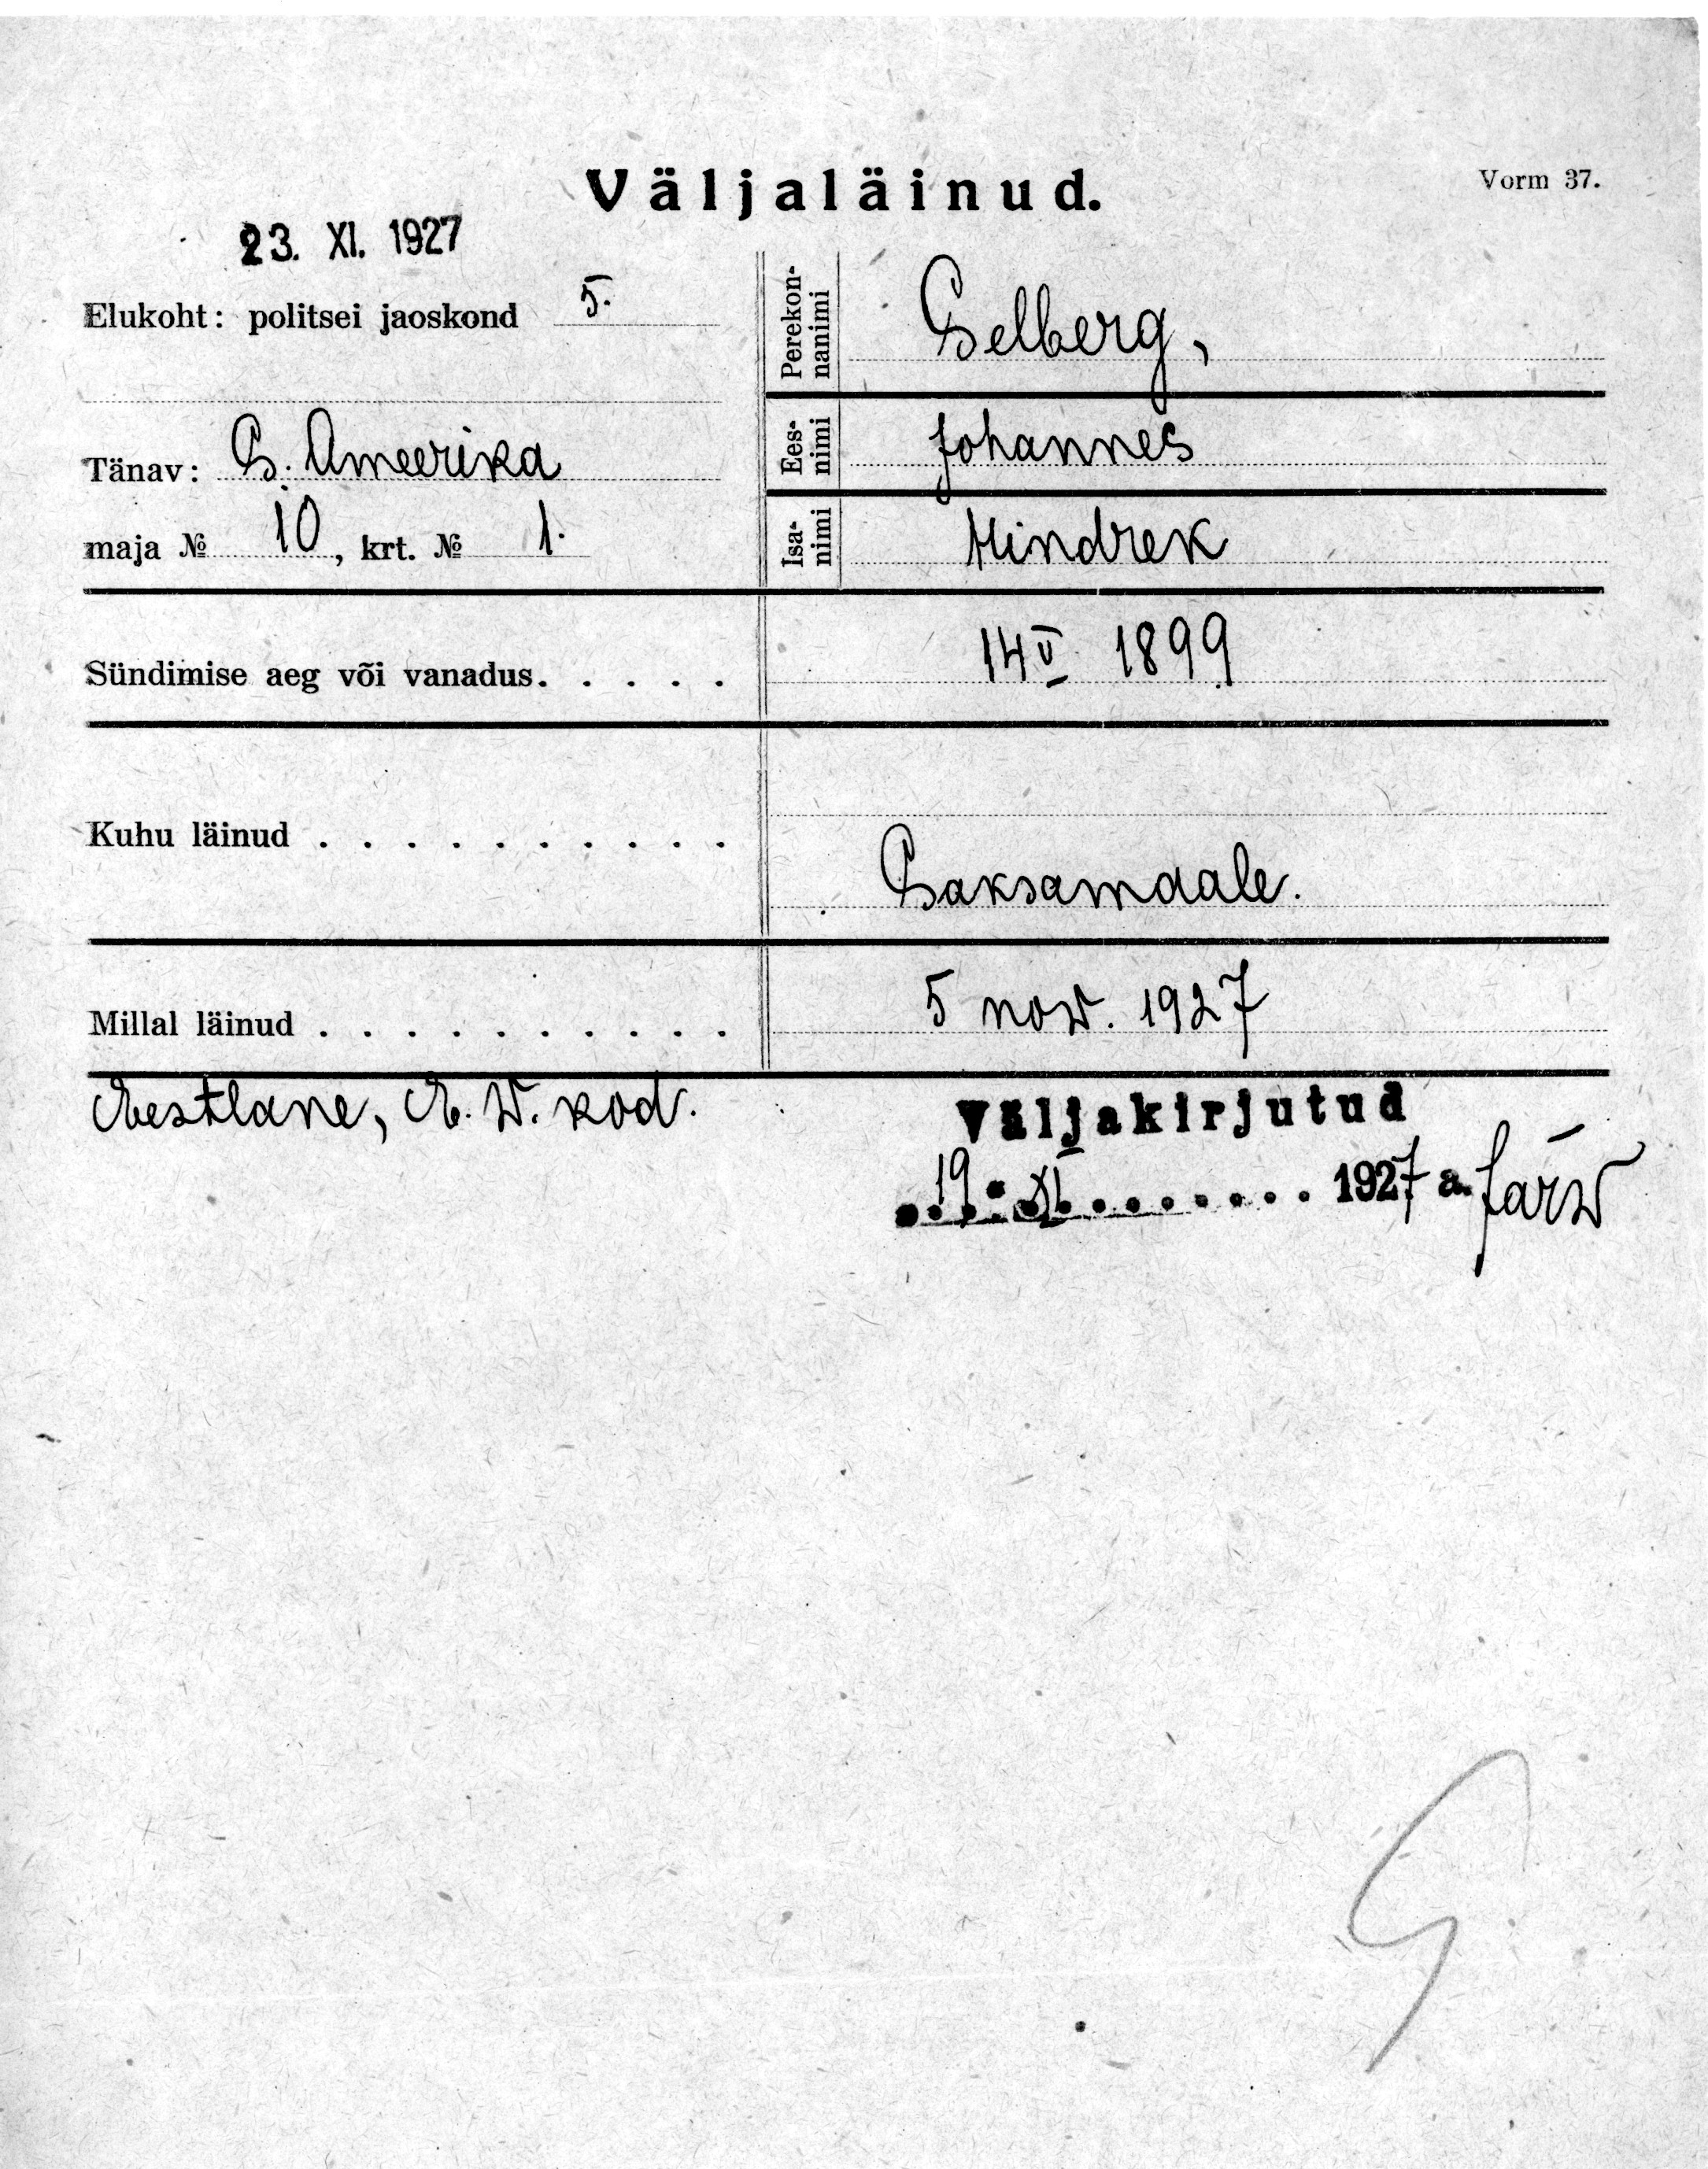 Väljaläinud.
Vorm 37.
23. XI. 1927
Elukoht: politsei jaoskond 5.
Tänav: S. Ameerika
maja № 10, krt. № 1.
Perekon-
nanimi
Selberg,
Ees-
nimi
Johannes
Isa-
nimi
Hindrek
Sündimise aeg või vanadus. . . . . 14 V 1899
Kuhu läinud . . . . . . . . . .
Saksamaale.
Millal läinud . . . . . . . . . . 5 now. 1927
Eestlane, E. W. kod.
Väljakirjutud
19. XI . . . . . . . 1927 a. Järw